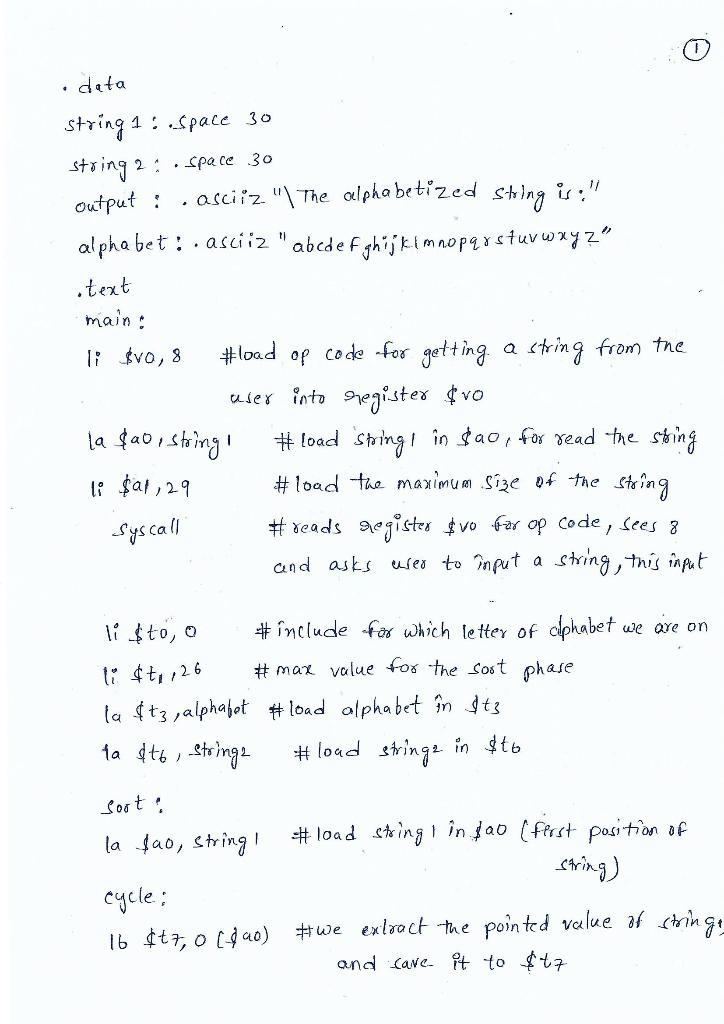 1
. data
string 1 : .space 30
string 2 : . space 30
output : . asciiz "\ The alphabetized string is :"
alphabet : . asciiz " abcdefghijklmnopqrstuvwxyz"
.text
main :
li $v0, 8 #load op code for getting a string from the
user into register $v0
la $a0, string1 # load string1 in $a0, for read the string
li $a1, 29 # load the maximum size of the string
syscall # reads register $v0 for op code, sees 8
and asks user to input a string, this input
li $t0, 0 # include for which letter of alphabet we are on
li $t1, 26 # max value for the sort phase
la $t3, alphabet # load alphabet in $t3
la $t6, string2 # load string2 in $t6
sort :
la $a0, string1 # load string1 in $a0 (first position of
string)
cycle :
lb $t7, 0 ($a0) #we extract the pointed value of string1
and save it to $t7